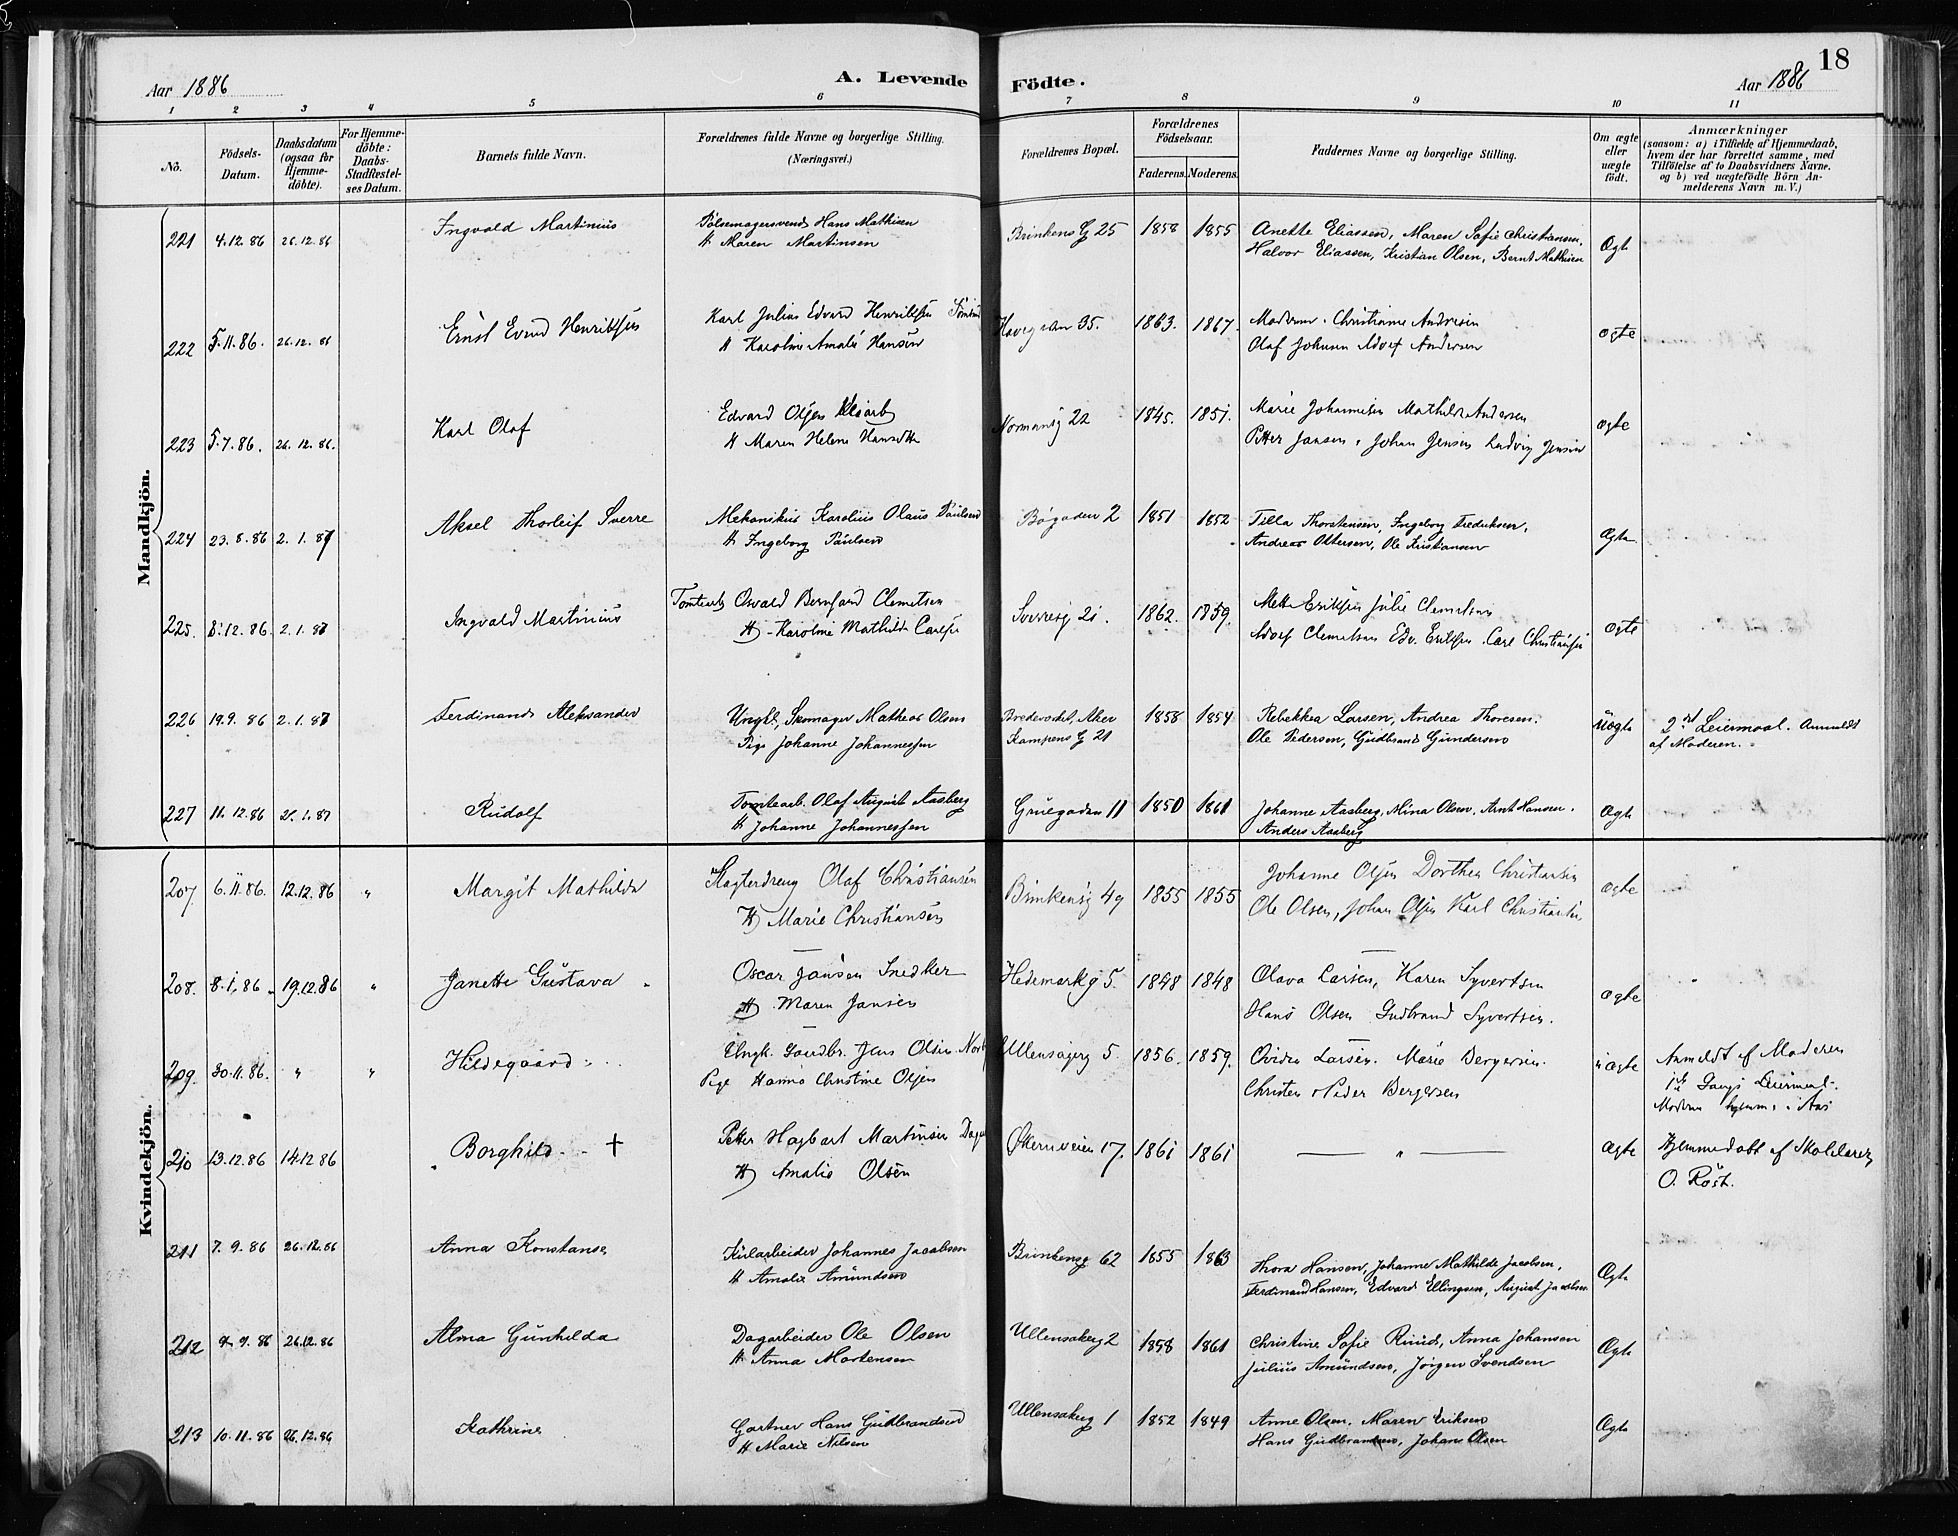 Aar 1886
A. Levende
Födte.
Aar 1886
18
1 2 3 4 5 6 7 8 9 10 11
No.
Födsels-Datum.
Daabsdatum (ogsaa for Hjemme-döbte).
For Hjemme-döbte: Daabs-Stadfæstel-ses Datum.
Barnets fulde Navn.
Forældrenes fulde Navne og borgerlige Stilling.
(Næringsvei.)
Forældrenes Bopæl.
Forældrenes Födselsaar.
Faderens. Moderens.
Faddernes Navne og borgerlige Stilling.
Om ægte eller uægte födt.
Anmærkninger
(saasom: a) i Tilfælde af Hjemmedaab,
hvem der har forrettet samme, med
Tilföielse af to Daabsvidners Navne.
og b) ved uægtefödte Börn An-
melderens Navn m. V.)
Mandkjön.
221 4.12.86 26.12.86 Ingvald Martinius Pølsemagersvend Hans Mathisen
H Maren Martinsen
Brinkens G 25 1858 1855 Anette Eliassen, Maren Sofie Christiansen,
Halvor Eliassen, Kristian Olsen, Bernt Mathisen
Ægte
222 5.11.86. 26.12.86 Ernst Henriksen Karl Julius Edvard Henriksen
H Karoline Amalie Hansen
35. 1863. 1867. Christiane Andresen
Olaf Johann Adolf Andersen
ægte
223 5.7.86. 26.12.86. Karl Olaf Edvard Olsen
H Maren Helene
Normansg 22 1845. 1851. Marie Johannesen Mathilde Andersen
Petter Jansen, Johan Jensen Ludvig Jensen
ægte
224 23.8.86 2.1.87 Aksel Thorleif Sverre Mekanikus Karolius Olaus Paulsen
H Ingeborg Paulsen
Bøgaden 2 1851 1852 Tilla Thorstensen, Ingeborg Fredriksen,
Andreas Ottersen, Ole Kristiansen
Ægte
225. 8.12.86. 2.1.87 Ingvald Martinius Tomtearb Osvald Bernhard Clemetsen
H Karoline Mathilde
Sverresg 21. 1862. 1859. Mette Eriksen Julie Clemetsen
Adolf Clemetsen Edv. Eriksen. Carl Christensen
ægte
226 19.9.86 2.1.87 Ferdinand Aleksander Ungkl. Skomager Mathias Olsen
Pige Johanne Johannessen
Aker
Kampens G 21 1858 1854 Rebekkea Larsen, Andrea Thoresen.
Ole Pedersen, Gudbrand Gundersen
Uægte 2det Leiermaal. Anmeldt
af Moderen.
227 11.12.86 2.1.87 Rudolf Tomtearb. Olaf August Aasberg
H Johanne Johannessen
Gruegaden 11 1850 1861 Johanne Aasberg, Mina Olsen, Arnt Hansen.
Anders Aasberg
Ægte
Kvindekjön.
207. 6.11.86. 12.12.86 " Margit Mathilda Slagterdreng Olaf Christiansen
H Marie Christiansen
Brinkensg 49 1855 1855 Johanne Olsen Dorthea Christiansen
Ole Olsen, Johan Olsen Karl Christiansen
ægte
208. 8.1.86 19.12.86 " Janette Gustava Oscar Jansen Snedker
H Maren Jansen
Hedemarkg 5. 1848 1848 Olava Larsen, Karen Syvertsen
Hans Olsen Gudbrand Syvertsen.
ægte "
209. 30.11.86. " " Hildegaard Ungk. Jens Olsen
Pige Hanna Christine Olsen
Ullensagerg 5. 1856. 1859. Larsen. Marie Bergersen.
Christen Peder Bergersen
uægte Anmeldt af Moderen
1ste Gangs Leiermaal.
210 13.12.86 14.12.86 Borghild + Petter Hagbart Martinsen
H Amalie Olsen
Økernveien 17. 1861 1861 — " — Ægte Hjemmedøbt af Skolelærer
O. Røst.
211 7.9.86 26.12.86 Anna Konstanse Kularbeider Johannes Jacobsen
H Amalie Amundsen
Brinkensg 62 1855 1863 Thora Hansen, Johanne Mathilde Jacobsen,
Ferdinand Hansen, Edvard Ellingsen, August Jacobsen
Ægte
212 9.9.86 26.12.86 Alma Gunhilda Dagarbeider Ole Olsen
H Anna Mortensen
Ullensakerg 2 1858 1861 Christine Sofie Ruud, Anna Johansen
Julius Amundsen, Jørgen Svendsen
Ægte
213 10.11.86 26.12.86 Kathrine Gartner Hans Gudbrandsen
H Marie Nilsen
Ullensakerg 1 1852 1849 Anne Olsen. Maren Eriksen
Hans Gudbrandsen, Johan Olsen
Ægte